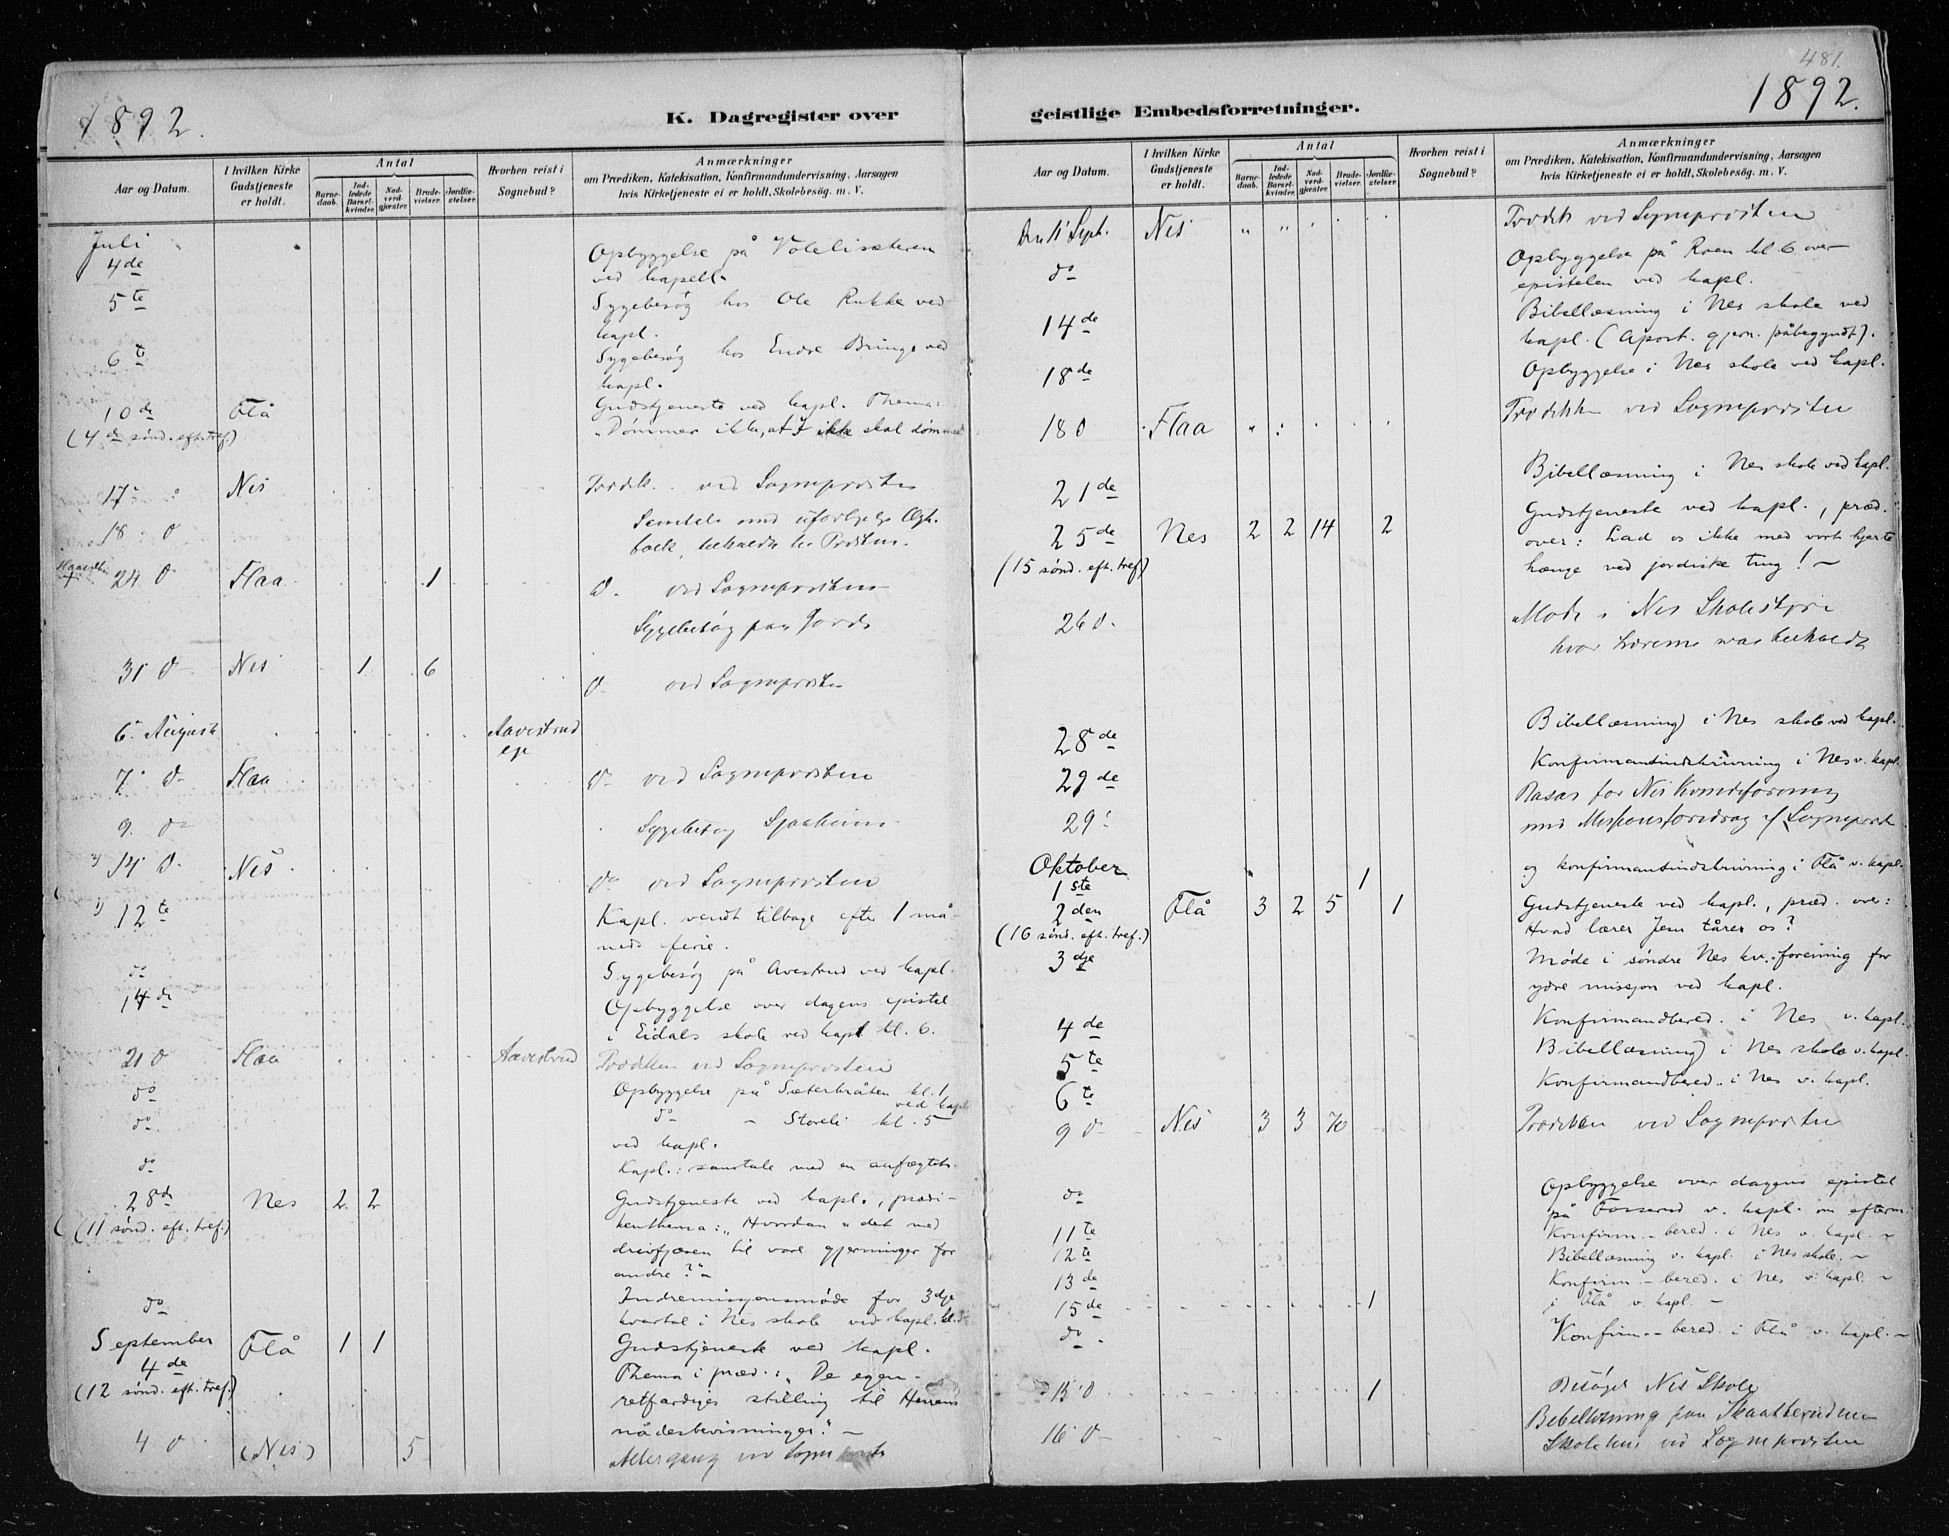 481.
1892.
K. Dagregister over
geistlige Embedsforretninger.
1892.
Aar og Datum.
I hvilken Kirke Gudstjeneste er holdt.
Antal
Barne-daab.
Ind-ledede Barsel-kvinder.
Nad-verd-gjæster.
Brude-vielser.
Jordfæ-stelser.
Hvorhen reist i Sognebud?
Anmærkninger
om Prædiken, Katekisation, Konfirmandundervisning, Aarsagen
hvis Kirketjeneste ei er holdt, Skolebesøg. m. V.
Juli
4de Opbyggelse på Votelisæteren
ved kapell.
5te Sygebesøg hos Ole Rukke ved
kapl.
6te Sygebesøg hos Endre Bringe ved
kapl.
10de Flå Gudstjeneste ved kapl. Thema:
(4de sønd. eft. tref.) "Dømmer ikke, at I ikke skal dømmes
17 Nes ved Sogneprosten
18 do Samtale med
24 do Flaa 1 do ved Sogneprosten
Sygebesøg paa
31 do Nes 1 6 do ved Sogneprosten
6. August Aavestrud
eje
7. do Flaa do ved Sogneprosten
9. do Sygebesøg
2) 14 do Nes do ved Sogneprosten
1) 12te Kapl. vendt tilbage efter 1 må-
neds ferie.
do Sygebesøg på Avestrud ved kapl.
14de Opbyggelse over dagens epistel
i Eidals skole ved kapl kl. 6.
21 do Flaa Aavestrud Prædiken ved Sogneprosten
do Opbyggelse på Sæterbråten kl. 1
ved kapl
do do - Storeli kl. 5
ved kapl.
do Kapl.: samtale med en anfægtet.
28de Nes 2 2 Gudstjeneste ved kapl., prædi-
(11 sønd. eft. tref.) kenthema: "Hvordan er det med
drivfjæren til vore gjerninger for
andre?"
do Indremissionsmøde for 3dje
kvartal i Nes skole ved kapl. kl.
September Flå 1 1 Gudstjeneste ved kapl.
4de Thema i præd.: "De egen-
(12 sønd. eft. tref.) retfærdiges stilling til Herrens
nådesbevisninger." -
4 do (Nes) 5 Altergang ved
Aar og Datum.
I hvilken Kirke Gudstjeneste er holdt.
Antal
Barne-daab.
Ind-ledede Barsel-kvinder.
Nad-verd-gjæster.
Brude-vielser.
Jordfæ-stelser.
Hvorhen reist i Sognebud?
Anmærkninger
om Prædiken, Katekisation, Konfirmandundervisning, Aarsagen
hvis Kirketjeneste ei er holdt, Skolebesøg. m. V.
Den 11 Sept. Nes " " Prædik ved Sogneprosten
do Opbyggelse på Roen kl. 6 over
epistelen ved kapl.
14de Bibellæsning i Nes skole ved
kapl. (Apost. gjern. påbegyndt).
18de Opbyggelse i Nes skole ved kapl.
18 do Flaa Prædiken ved Sogneprosten
21de Bibellæsning i Nes skole ved kapl.
25de Nes 2 2 14 2 Gudstjeneste ved kapl., præd.
(15 sønd. eft. tref.) over: Lad os ikke med vort hjerte
hænge ved jordiske ting! -
26 do Møde i Nes Skolestyre
hvor
28de Bibellæsning i Nes skole ved kapl.
29de Konfirmantindskrivning i Nes v. kapl.
29 Basar for Nes Kvindeforening
med Missionsforedrag af Sogneprest
Oktober
1ste 1 og konfirmantindskrivning i Flå v. kapl.
2den Flå 3 2 5 1 Gudstjeneste ved kapl., præd. over:
(16 sønd. eft. tref.) Hvad lærer Jesu tårer os?
3dje Møde i søndre Nes kv.-forening for
ydre missjon ved kapl.
4de Konfirmandbered. i Nes v. kapl.
5te Bibellæsning i Nes skole v. kapl.
6te Konfirmandbered. i Nes v. kapl.
9 do Nes 3 3 70 Prædiken ved Sogneprosten
do Opbyggelse over dagens epistel
på Fosserud v. kapl. om efterm.
11te Konfirm.-bered. i Nes v. kapl. -
12te Bibellæsning v. kapl. i Nes skole. -
13de Konfirm.-bered. i Nes v. kapl. -
15de 1 i Flå v. kapl. -
do Konfirm.-bered. i Flå v. kapl. -
15 do 1 Besøgt Nes Skole
16 do Bibellæsning paa
Skolehus ved Sogneprosten